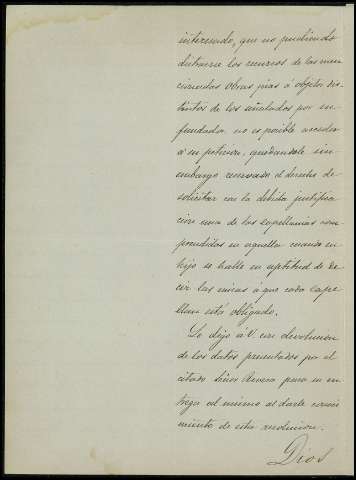 interesado, que no pudiendo
distraerse los recursos de las men
cionadas obras pias á objetos dis
tintos de los señalados por su
fundador no es posible acceder
á su peticion, quedandole sin
embargo reservado el derecho de
solicitar con la debida justifica
cion una de las capellanias com
prendidas en aquellas cuando su
hijo se halle en aptitud de de
cir las misas á que cada cape
llan está obligado.
Lo digo á V. con devolucion
de los datos presentados por el
citado Señor Rivera para su en
trega al mismo al darle conoci
miento de esta resolucion.
Dios